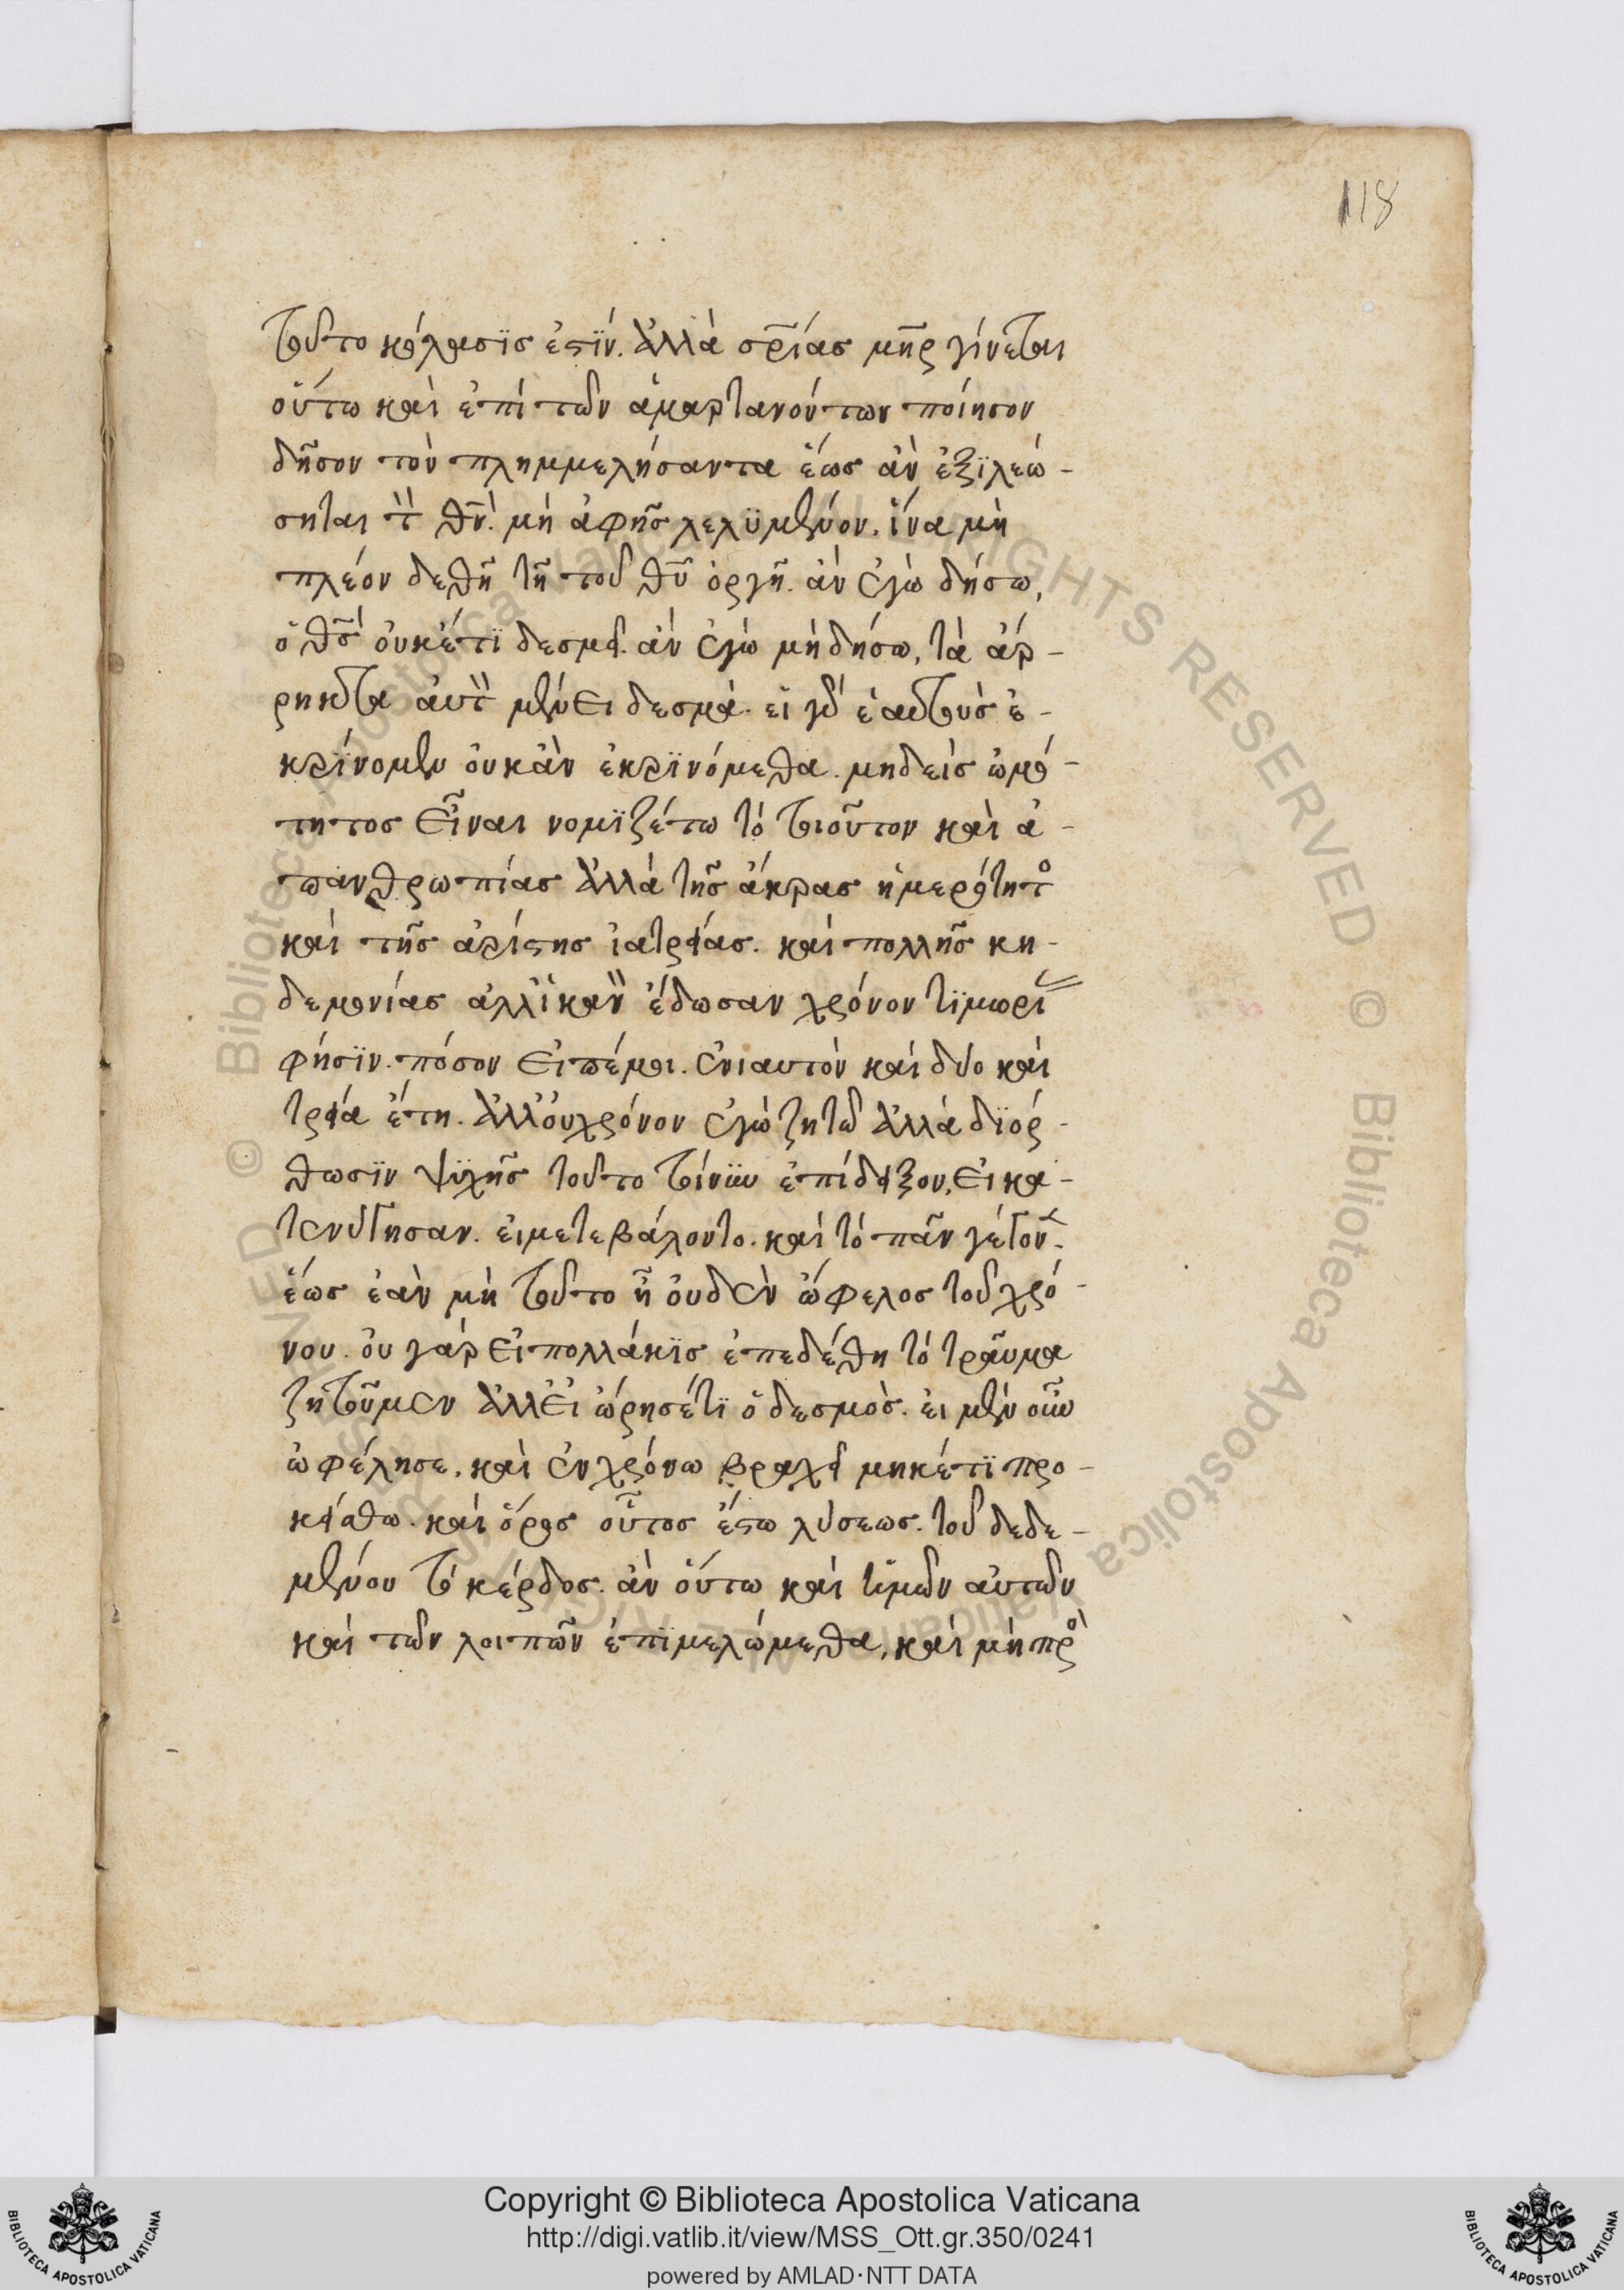 118
τοῦτο κόλασϊς ἐστϊν. ἀλλὰ σρ̅ίας μη̅ρ γίνεται
οὕτω καὶ ἐπὶ τῶν ἁμαρτανόντων ποίησον
δῆσον τὸν πλημμελήσαντα ἕως ἂν ἐξϊλεώ-
σηται τὸν θ̅ν̅. μὴ ἀφῆς λελϋμένον. ἵνα μὴ
πλέον δεθῆ τῆ τοῦ θ̅υ̅ ὀργῆ. ἂν ἐγὼ δήσω,
ὁ θ̅ς̅ οὐκέτϊ δεσμεῖ. ἂν ἐγὼ μὴ δήσω, τὰ ἄρ-
ρηκτα αὐτὸν μένει δεσμά. εἰ γὰρ ἑαυτοὺς ἐ-
κρϊνομεν οὐκ ἂν ἐκρϊνόμεθα. μηδεὶς ὠμό-
τητος εἶναι νομϊζέτω τὸ τοιοῦτον καὶ ἀ-
πανθρωπίας ἀλλὰ τῆς ἄκρας ἡμερότητος
καὶ τῆς ἀρίστης ἰατρείας. καὶ πολλῆς κη-
δεμονίας ἀλλ' ἱκανὸν ἔδωσαν χρόνον τϊμωρί
φήσϊν. πόσον εἰπέ μοι. ἐνιαυτὸν καὶ δύο καὶ
τρεία ἔτη. ἀλλ' οὐ χρόνον ἐγὼ ζητῶ ἀλλὰ δϊόρ-
θωσϊν ψϋχῆς τοῦτο τοίνϋν ἐπίδειξον, εἰ κα-
τενύγησαν. εἰ μετεβάλοντο. καὶ τὸ πᾶν γέγονεν.
ἕως ἐὰν μὴ τοῦτο ἦ οὐδὲν ὤφελος τοῦ χρό-
νου. οὐ γὰρ εἰ πολλάκϊς ἐπεδέθη τὸ τραῦμα
ζητοῦμεν ἀλλ' εἰ ὤρησέ τϊ ὁ δεσμὸς. εἰ μὲν οὖν
ὠφέλησε, καὶ ἐν χρόνω βραχεῖ μηκέτϊ προ-
κείσθω. καὶ ὅρος οὗτος ἔστω λύσεως. τοῦ δεδε-
μένου τὸ κέρδος. ἂν οὕτω καὶ ἡμῶν αὐτῶν
καὶ τῶν λοιπῶν ἐπϊμελώμεθα, καὶ μὴ πρὸς
Copyright © Biblioteca Apostolica Vaticana
http://digi.vatlib.it/view/MSS_Ott.gr.350/0241
powered by AMLAD·NTT DATA